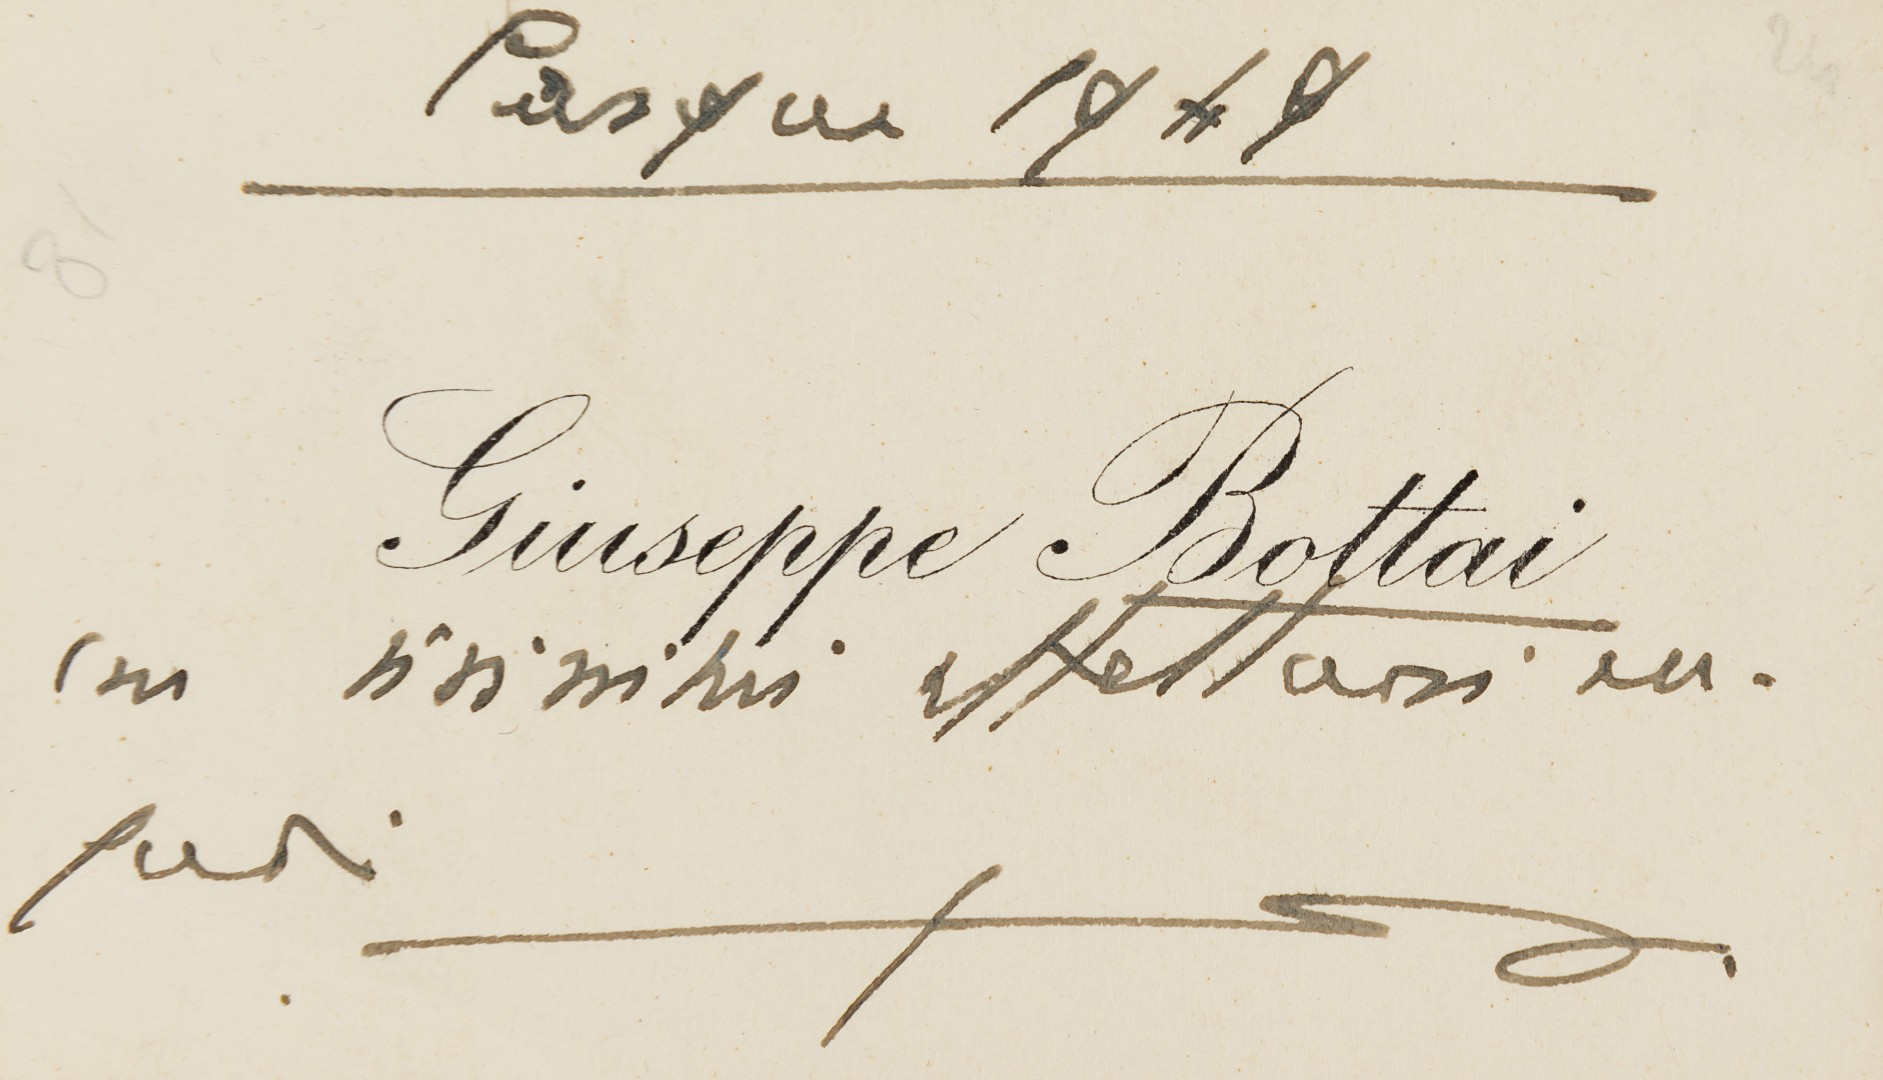 Pasqua 1949
Giuseppe Bottai
con affettuosi au-
guri